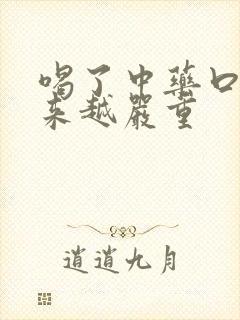 喝了中藥口
来越嚴重
逍遥九月